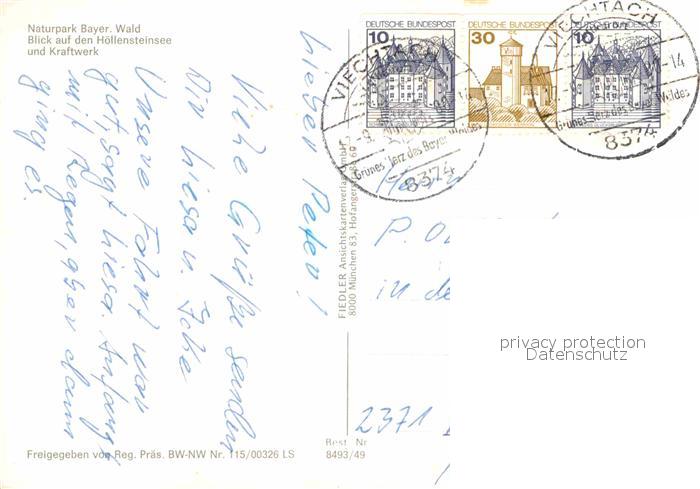 Naturpark Bayer. Wald
Blick auf den Höllensteinsee
und Kraftwerk
lieber Peter!
Viele Grüße senden
Dir Liesa u. Icke
Unsere Fahrt war
gut, sagt Liesa. Anfangs
mit Regen, aber dann
ging es.
Freigegeben von Reg. Präs. BW-NW Nr. 115/00326 LS
FIEDLER Ansichtskartenverlag GmbH,
8000 München 83, Hofangerstraße 69
Best Nr
8493/49
DEUTSCHE BUNDESPOST
10
DEUTSCHE BUNDESPOST
30
DEUTSCHE BUNDESPOST
10
VIECHTACH
Grünes Herz des Bayer. Waldes
8374
VIECHTACH
-14
Grünes Herz des Bayer Waldes
8374
P.
in
2371
privacy protection
Datenschutz